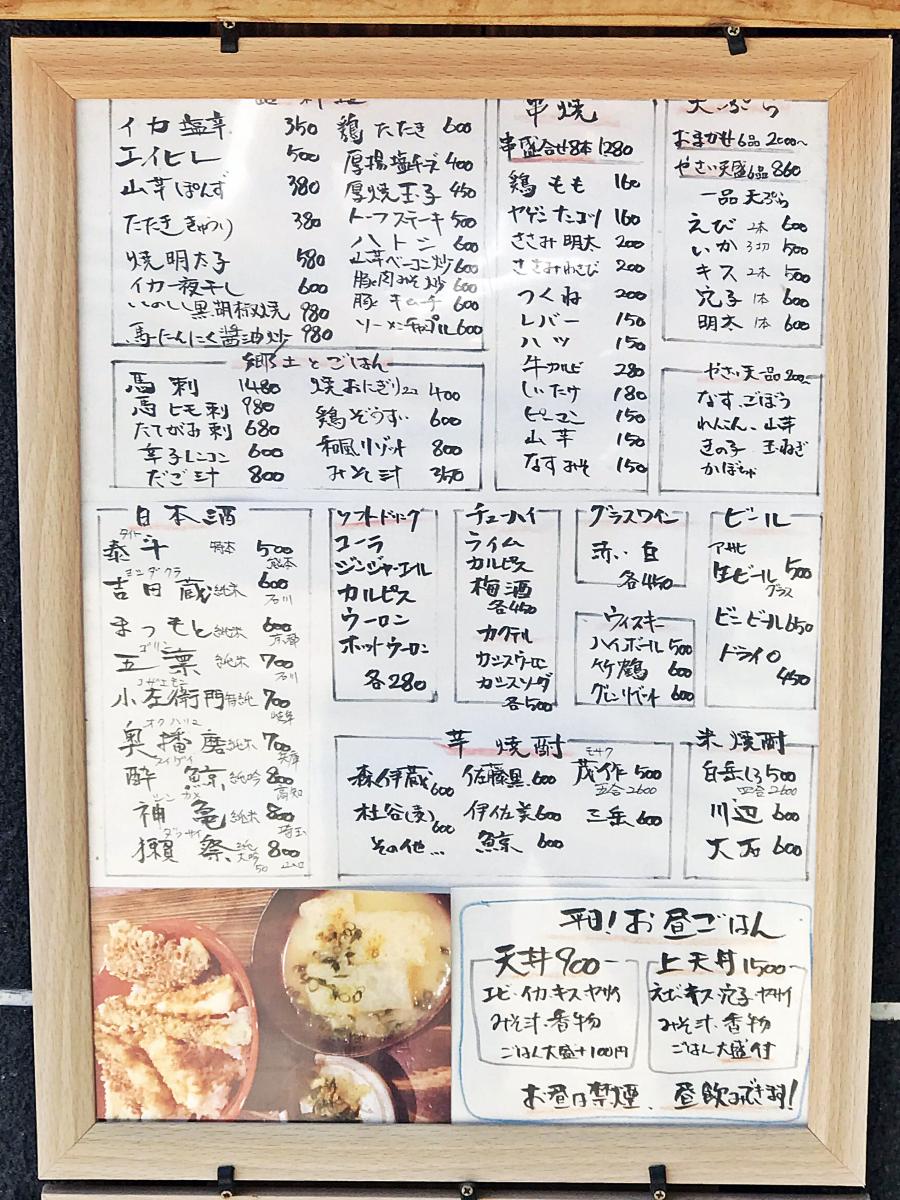 イカ塩辛 350
エイヒレ 500
山芋ぽんず 380
たたききゅうり 380
焼明太子 580
イカ一夜干し 600
いのしし黒胡椒焼 980
馬にんにく醤油炒 980
鶏たたき 600
厚揚塩チーズ 400
厚焼玉子 450
トーフステーキ 500
ハトシ 600
山芋ベーコン炒 600
豚肉みそ炒 600
豚キムチ 600
ソーメンチャンプル 600
串焼
串盛合せ8本 1280
鶏もも 160
ヤゲンナンコツ 160
ささみ明太 200
ささみわさび 200
つくね 200
レバー 150
ハツ 150
牛カルビ 280
しいたけ 180
ピーマン 150
山芋 150
なすみそ 150
天ぷら
おまかせ6品 2000~
やさい天盛6品 860
一品天ぷら
えび 2本 600
いか 3切 500
キス 2本 500
穴子 1本 600
明太 1本 600
やさい天一品 200~
なす、ごぼう
れんこん、山芋
きの子 玉ねぎ
かぼちゃ
郷土とごはん
馬刺 1480
馬ヒモ刺 980
たてがみ刺 680
辛子レンコン 600
だご汁 800
焼おにぎり2コ 400
鶏ぞうすい 600
和風リゾット 800
みそ汁 350
日本酒
タイト
泰斗 500
熊本
ヨシダクラ
吉田蔵 純米 600
石川
まつもと 純米 600
京都
ゴリン
五凛 純米 700
石川
コザエモン
小左衛門 特純 700
岐阜
オクハリマ
奥播磨 純米 700
兵庫
スイゲイ
酔鯨 純吟 800
高知
シンカメ
神亀 純米 800
埼玉
ダッサイ
獺祭 純米大吟50 800
山口
ソフトドリンク
コーラ
ジンジャーエール
カルピス
ウーロン
ホットウーロン
各280
チューハイ
ライム
カルピス
梅酒
各450
カクテル
カシスウーロン
カシスソーダ
各500
グラスワイン
赤い白
各450
ウィスキー
ハイボール 500
竹鶴 600
グレンリベット 600
ビール
アサヒ
生ビール 500
グラス
ビンビール 650
ドライ0
450
芋焼酎
森伊蔵 600
杜谷(麦) 600
その他…
佐藤黒 600
伊佐美 600
鯨 600
モサク
茂作 500
五合2600
三岳 600
米焼酎
白岳しろ 500
四合2600
川辺 600
大石 600
平日!お昼ごはん
天丼 900-
エビ・イカ・キス・ヤサイ
みそ汁・香物
ごはん大盛+100円
上天丼 1500~
えビ・キス・穴子・ヤサイ
みそ汁・香物
ごはん大盛付
お昼は禁煙、昼飲みできます!